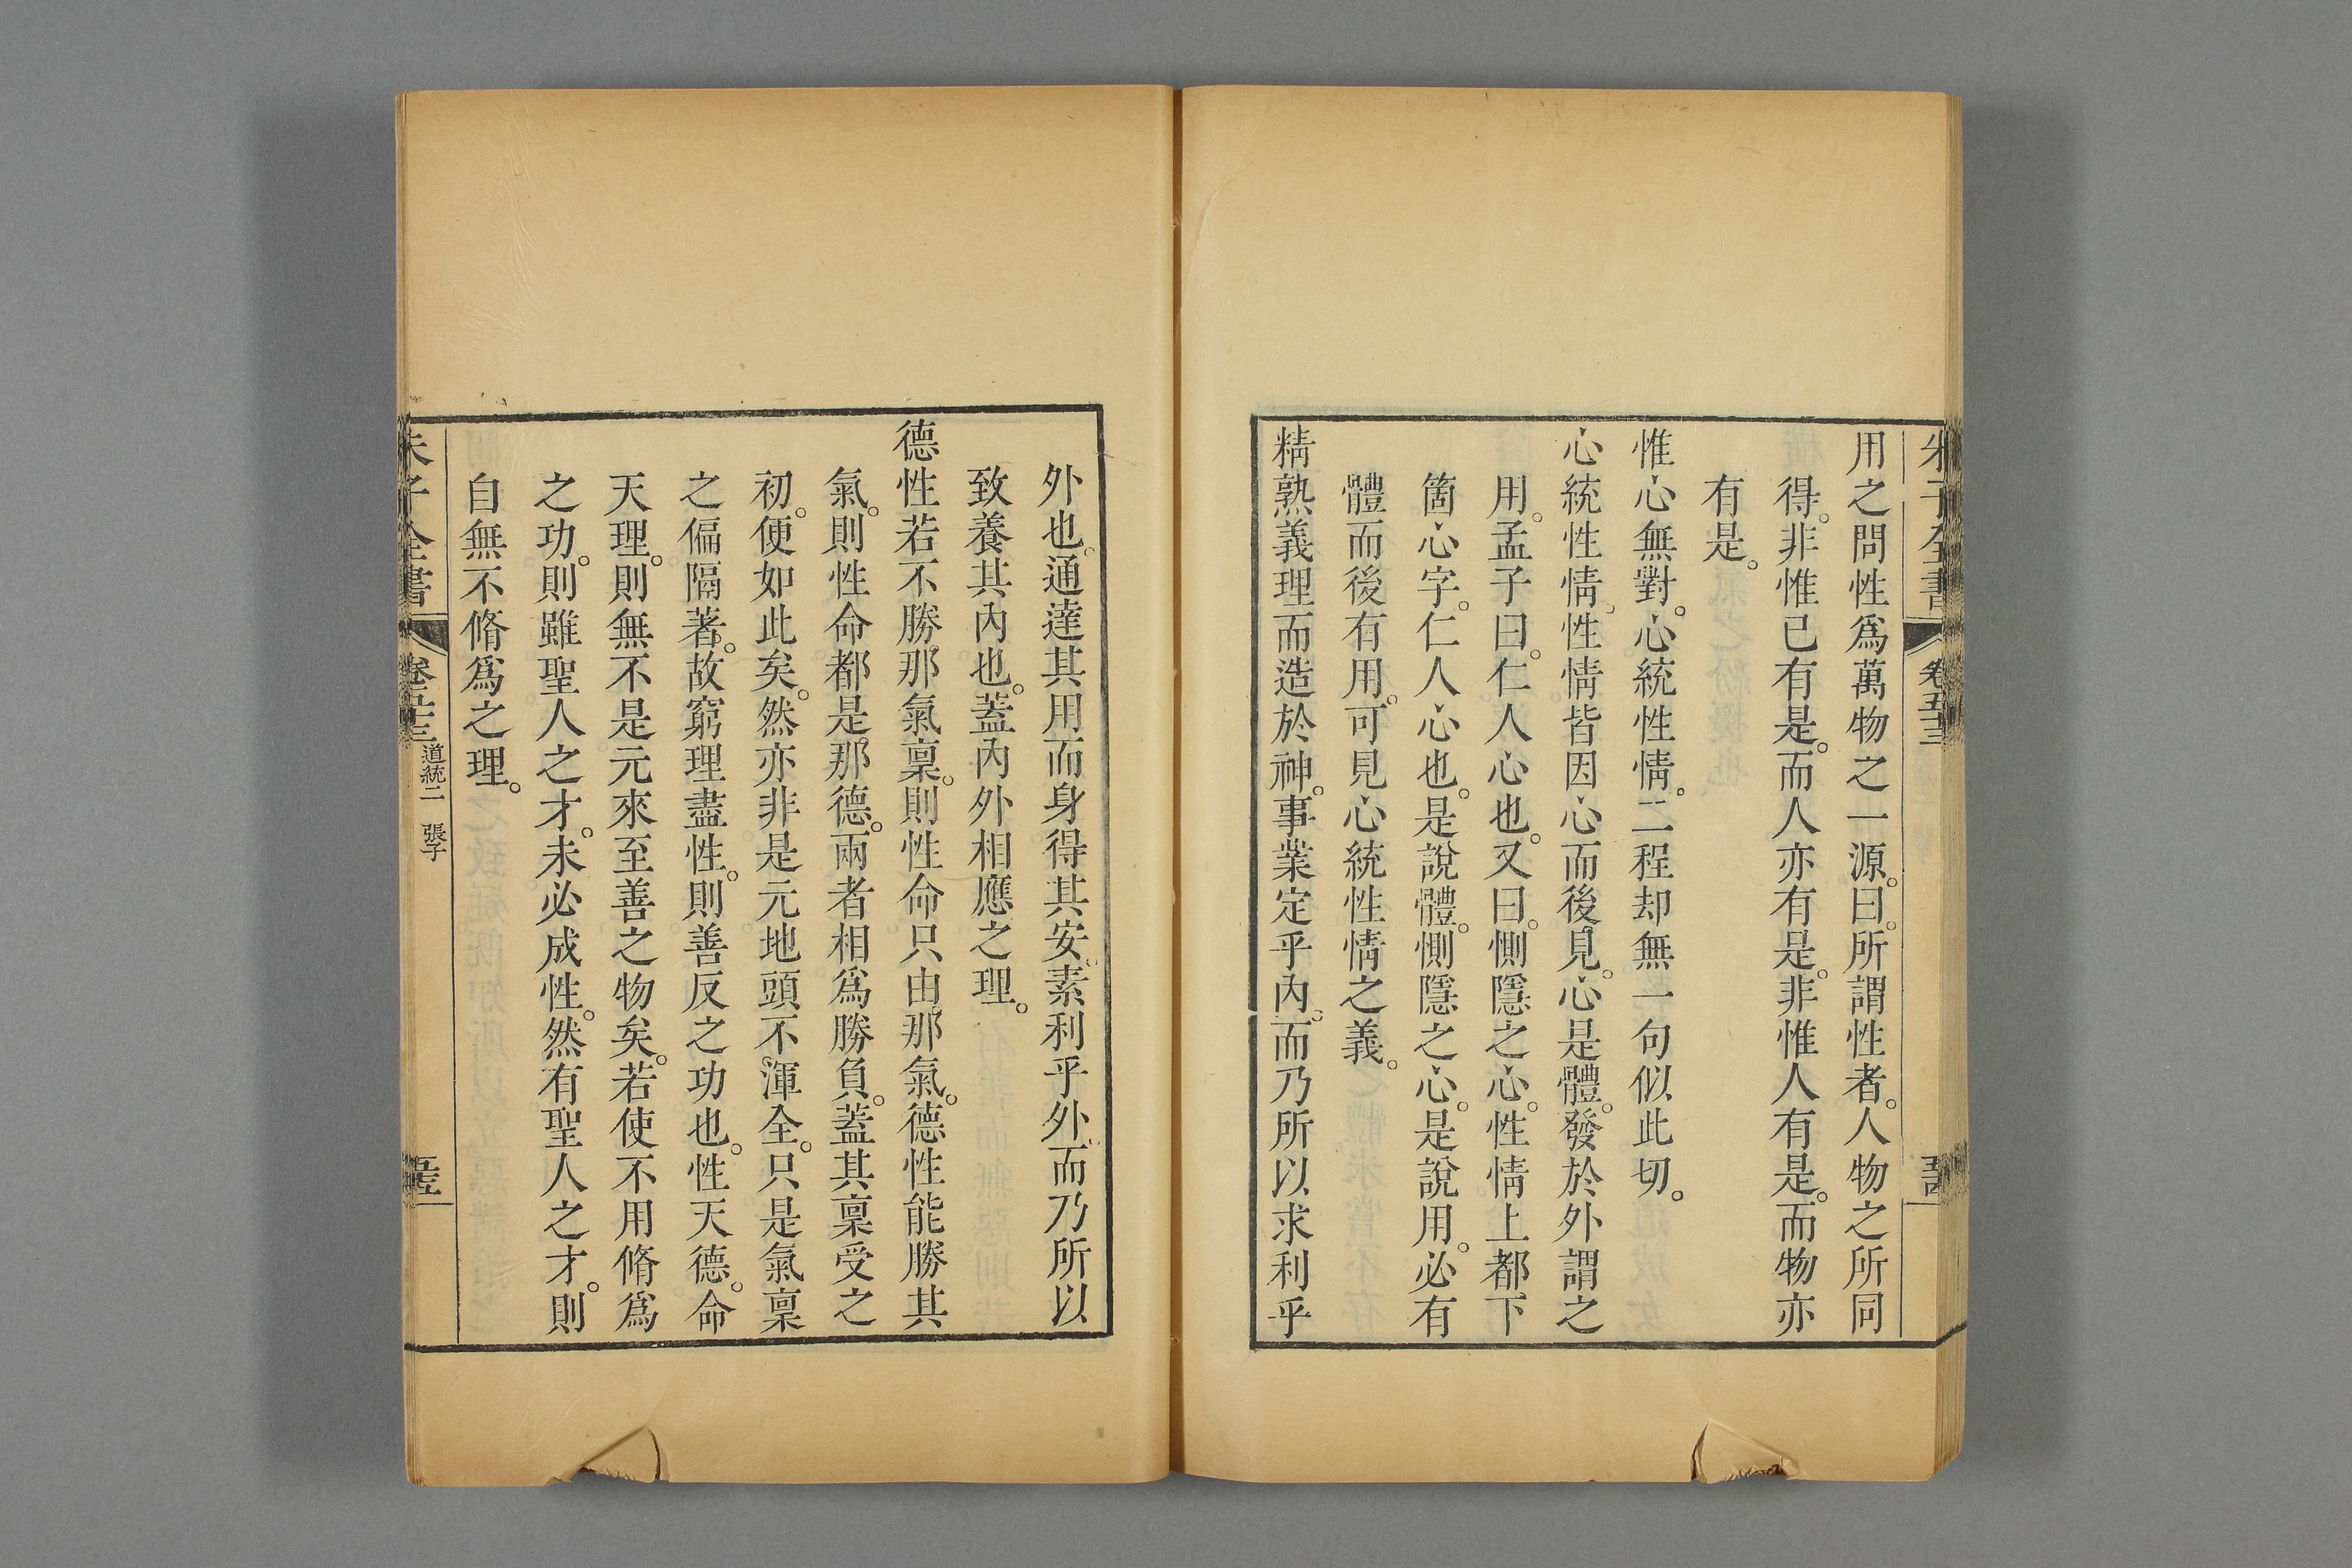 朱子全書 卷五十三
用之問性爲萬物之一源。曰。所謂性者。人物之所同
得。非惟已有是。而人亦有是。非惟人有是。而物亦
有是。
惟心無對。心統性情。二程却無一句似此切。
心統性情。性情皆因心而後見。心是體。發於外謂之
用。孟子曰。仁人心也。又曰。惻隱之心。性情上都下
箇心字。仁人心也。是說體。惻隱之心。是說用。必有
體而後有用。可見心統性情之義。
精熟義理而造於神。事業定乎內。而乃所以求利乎
外也。通達其用而身得其安。素利乎外。而乃所以
致養其內也。蓋內外相應之理。
德性若不勝那氣稟。則性命只由那氣。德性能勝其
氣。則性命都是那德。兩者相爲勝負。蓋其稟受之
初。便如此矣。然亦非是元地頭不渾全。只是氣稟
之偏隔著。故窮理盡性。則善反之功也。性天德。命
天理。則無不是元來至善之物矣。若使不用脩爲
之功。則雖聖人之才。未必成性。然有聖人之才。則
自無不脩爲之理。
朱子全書 卷五十三 道統二 張子